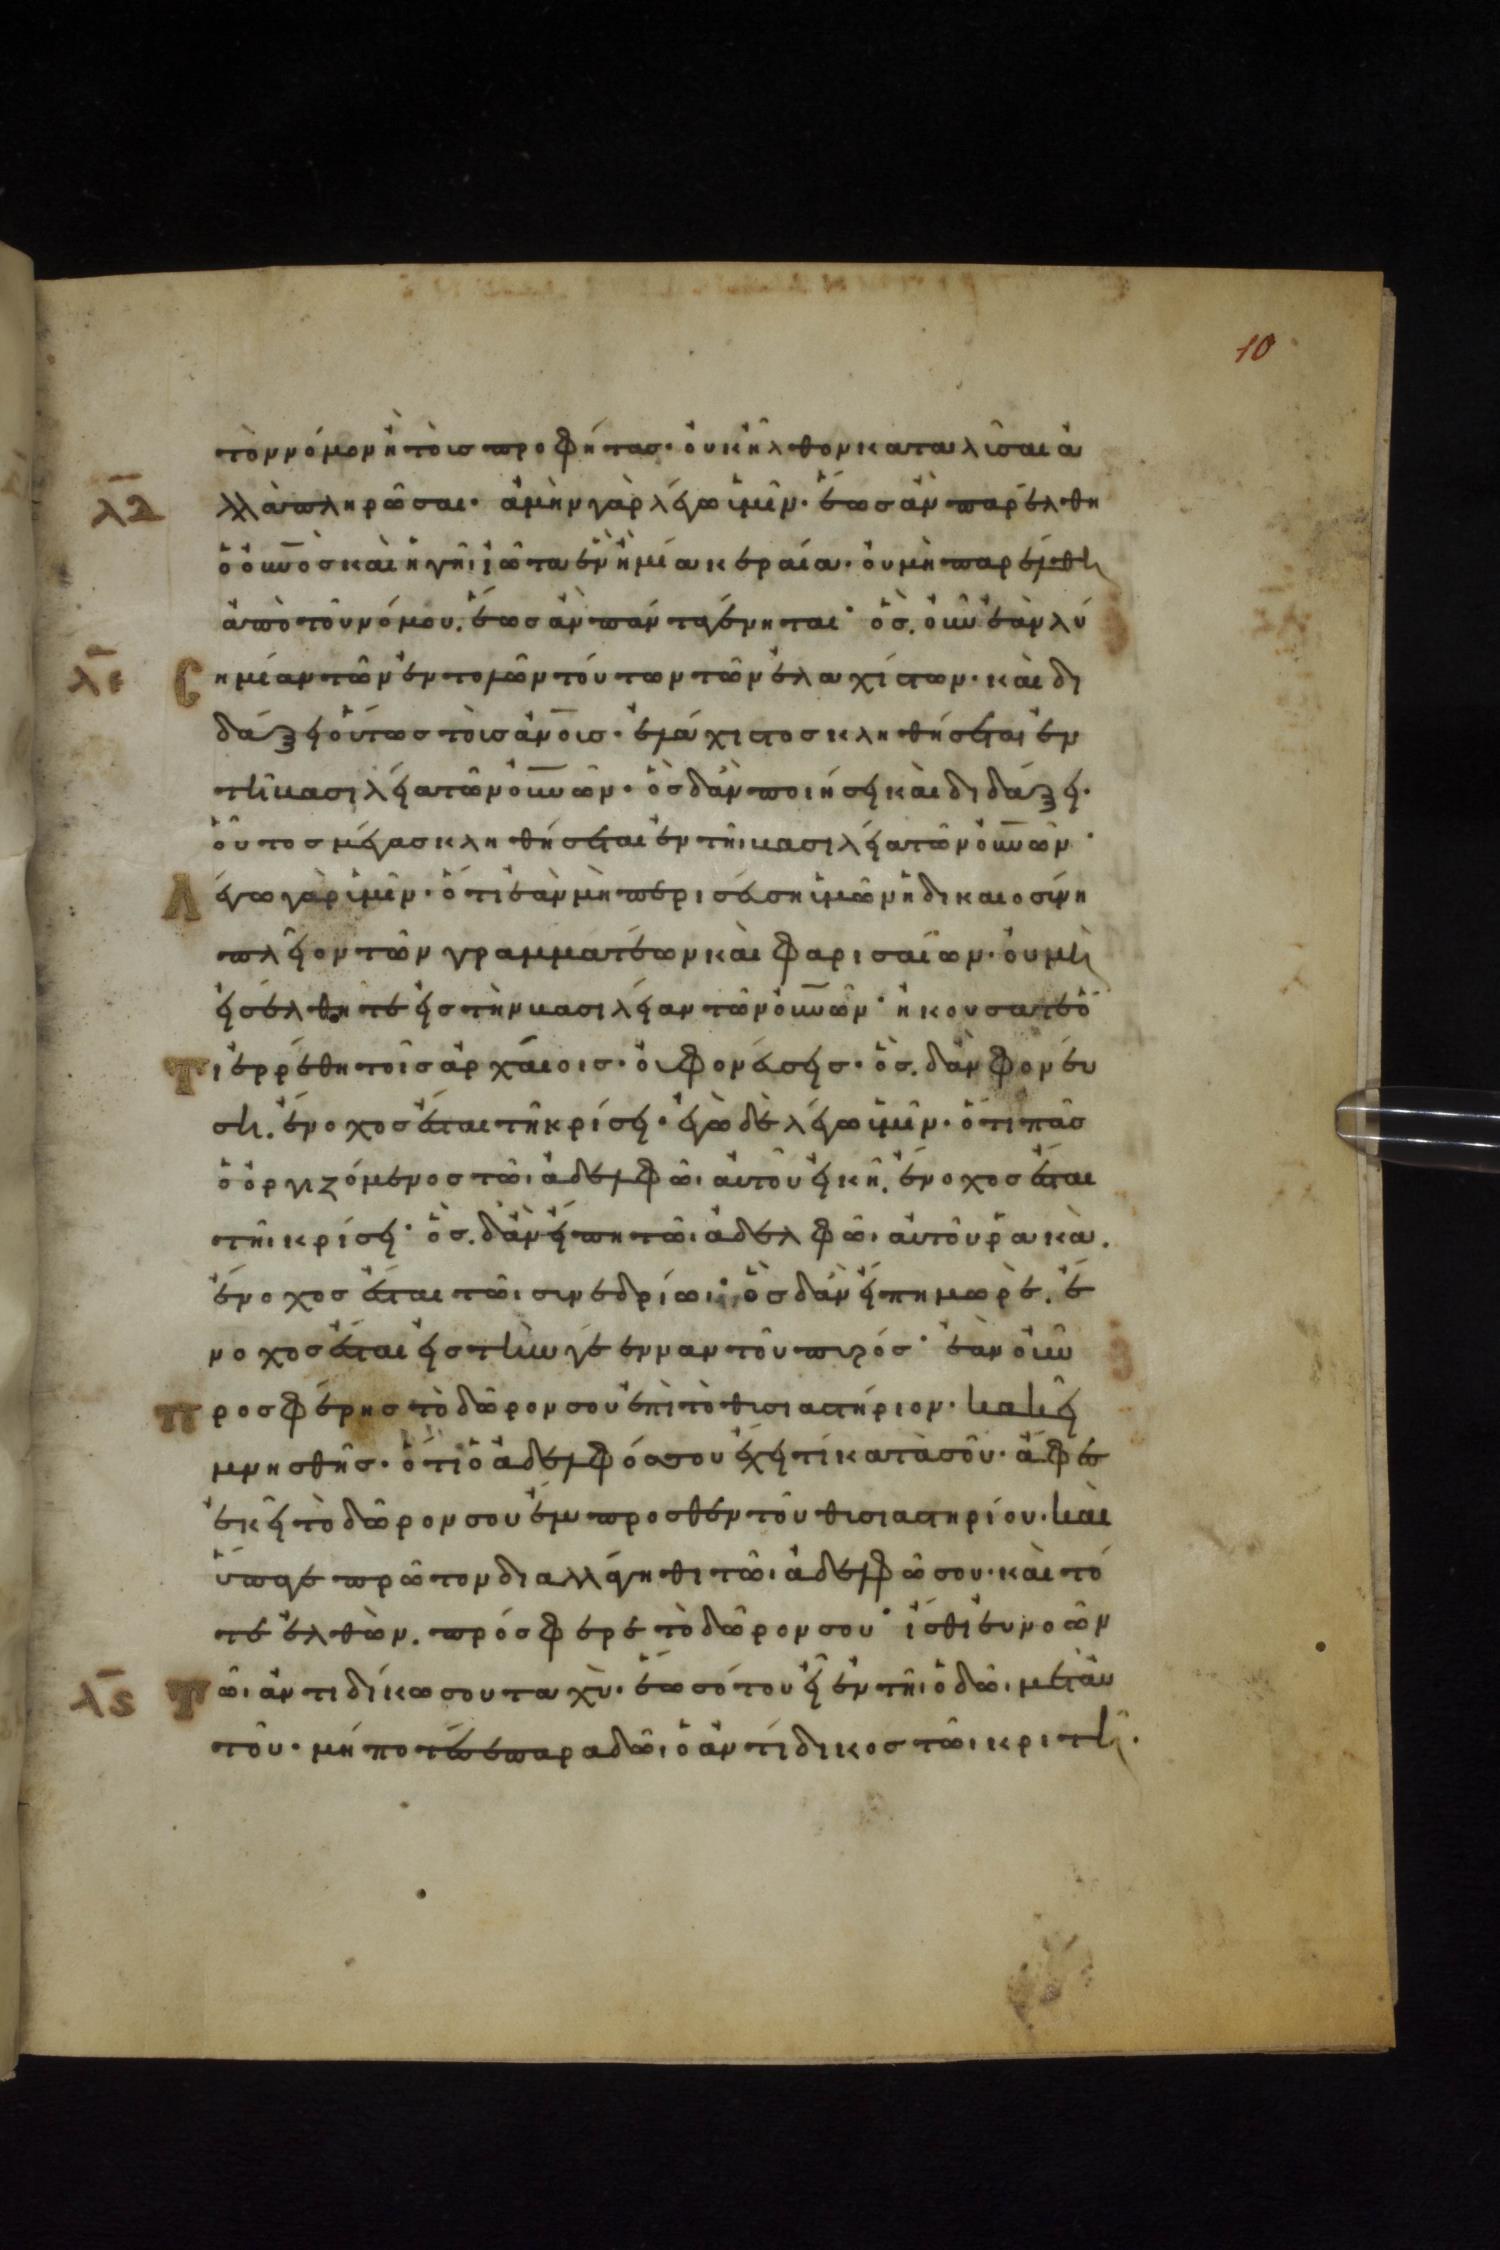 10
τὸν νόμον ἢ τοὺς προφήτασ· οὐκ ἦλθον καταλῦσαι ἀ
λδ λλὰ πληρῶσαι· ἀμὴν γὰρ λέγω ὑμῖν· ἕως ἂν παρέλθη
ὁ οὐνοσ καὶ ἡ γῆ· ἰῶτα ἓν ἢ μία κεραία· οὐ μὴ παρέλθη
ἀπὸ τοῦ νόμου. ἕως ἂν πάντα γένηται· ὃσ. οὖν ἐὰν λύ
λε ση μίαν τῶν ἐντολῶν τούτων τῶν ἐλαχίστων· καὶ δι
δάξει οὕτως τοὺσ ἀνοισ· ἐλάχιστοσ κληθήσεται ἐν
τῆ βασιλεία τῶν οὐνῶν· ὃσ δ' ἂν ποιήσει καὶ διδάξει·
οὗτοσ μέγασ κληθήσεται ἐν τῆι βασιλεία τῶν οὐνῶν·
Λέγω γὰρ ὑμῖν· ὅτι ἐὰν μὴ περισεύση ὑμῶν ἡ δικαιοσύνη
πλεῖον τῶν γραμματέων καὶ φαρισαίων· οὐ μὴ
εἰσέλθητε εἰσ τὴν βασιλείαν τῶν οὐνῶν· ἠκούσατε ὅ
Τι ἐρρέθη τοῖσ ἀρχαίοισ· οὐ φονεύσεισ· ὃσ. δ' ἂν φονεύ
ση. ἔνοχοσ ἔσται τῆ κρίσει· ἐγὼ δὲ λέγω ὑμῖν· ὅτι πᾶσ
ὁ ὀργιζόμενοσ τῶι ἀδελφῶι αὐτοῦ εἰκῆ. ἔνοχοσ ἔσται
τῆι κρίσει· ὃσ. δ' ἂν εἴπη τῶι ἀδελφῶι αὐτοῦ ῥακὰ.
ἔνοχοσ ἔσται τῶι συνεδρίωι· ὃσ δ' ἂν εἴπη μωρὲ. ἔ
νοχοσ ἔσται εἰσ τὴν γέενναν τοῦ πυρόσ· ἐὰν οὖν
Προσφέρησ τὸ δῶρον σου ἐπὶ τὸ θυσιαστήριον· κακεῖ
μνησθῆσ· ὅτι ὁ ἀδελφόσ σου ἔχει τί κατὰ σοῦ· ἄφεσ
ἐκεῖ τὸ δῶρον σου ἔμπροσθεν τοῦ θυσιαστηρίου· καὶ
ὕπαγε πρῶτον διαλλάγηθι τῶι ἀδελφῶ σου· καὶ τό
τε ἐλθὼν. πρόσφερε τὸ δῶρον σου· ἴσθι εὐνοῶν
λς Τῶι ἀντιδίκω σου ταχὺ· ἕωσ ότου εἶ ἐν τῆι ὁδῶι μετ' αὐ
τοῦ· μήποτέ σε παραδῶι ὁ ἀντίδικοσ τῶι κριτῆ·